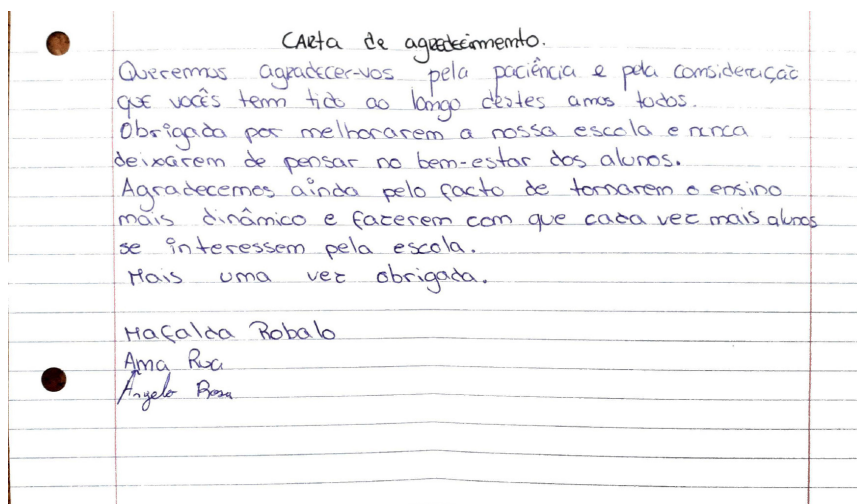 Carta de agradecimento.
Queremos agradecer-vos pela paciência e pela consideração
que vocês tem tido ao longo destes anos todos.
Obrigada por melhorarem a nossa escola e nunca
deixarem de pensar no bem-estar dos alunos.
Agradecemos ainda pelo facto de tornarem o ensino
mais dinâmico e fazerem com que cada vez mais alunos
se interessem pela escola.
Mais uma vez obrigada.
Mafalda Robalo
Ana Rua
Ângelo Rosa